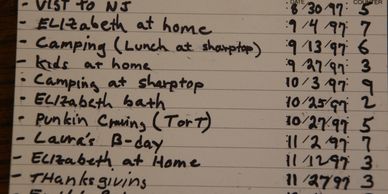 DATE COUNTER
- VIST to NJ 8/30/97 5
- ELIZabeth at home 9/4/97 7
- Camping (Lunch at sharptop) 9/13/97 6
- Kids at home 9/27/97 3
- Camping at sharptop 10/3/97 9
- ELIZabeth bath 10/25/97 2
- Punkin Craving (TorT) 10/27/97 5
- Laura's B-day 11/2/97 7
- ELIZabeth at Home 11/12/97 3
- THanksgivins 11/27/97 3